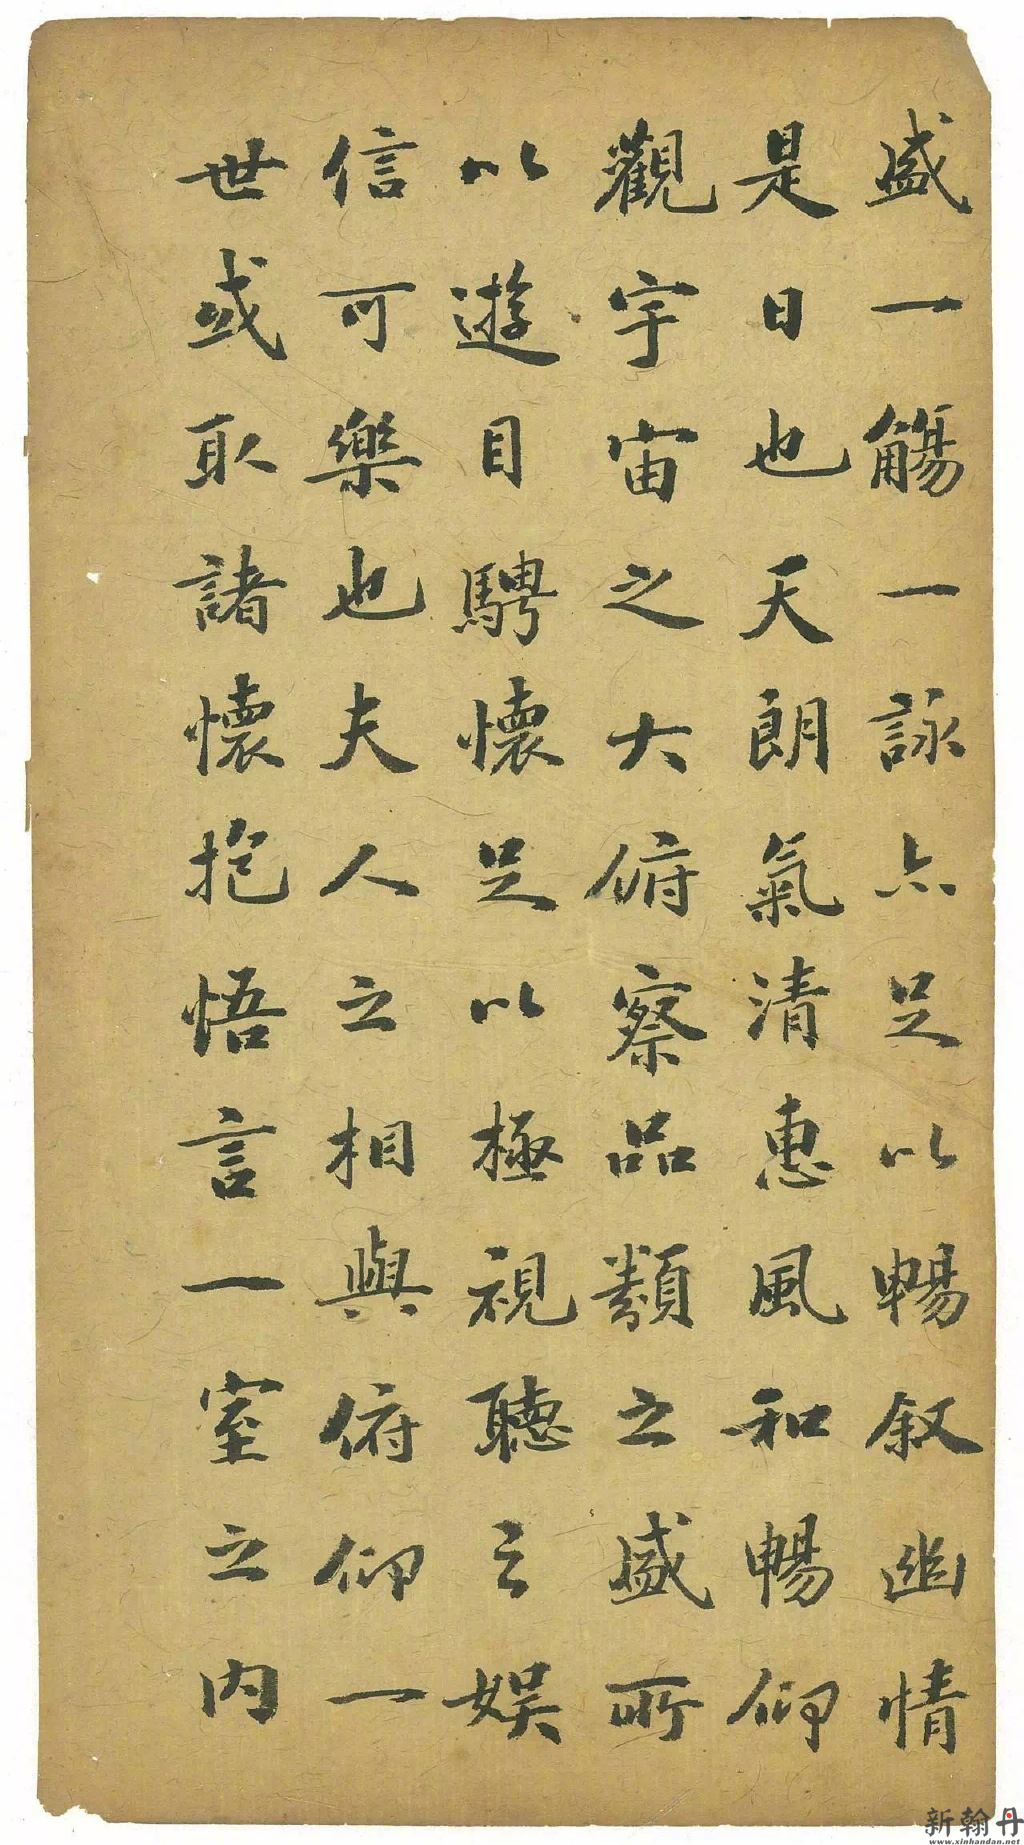 盛一觴一詠亦足以暢叙幽情
是日也天朗氣清惠風和暢仰
觀宇宙之大俯察品類之盛所
以遊目騁懷足以極視聽之娛
信可樂也夫人之相與俯仰一
世或取諸懷抱悟言一室之內
新翰丹
www.xinhandan.net